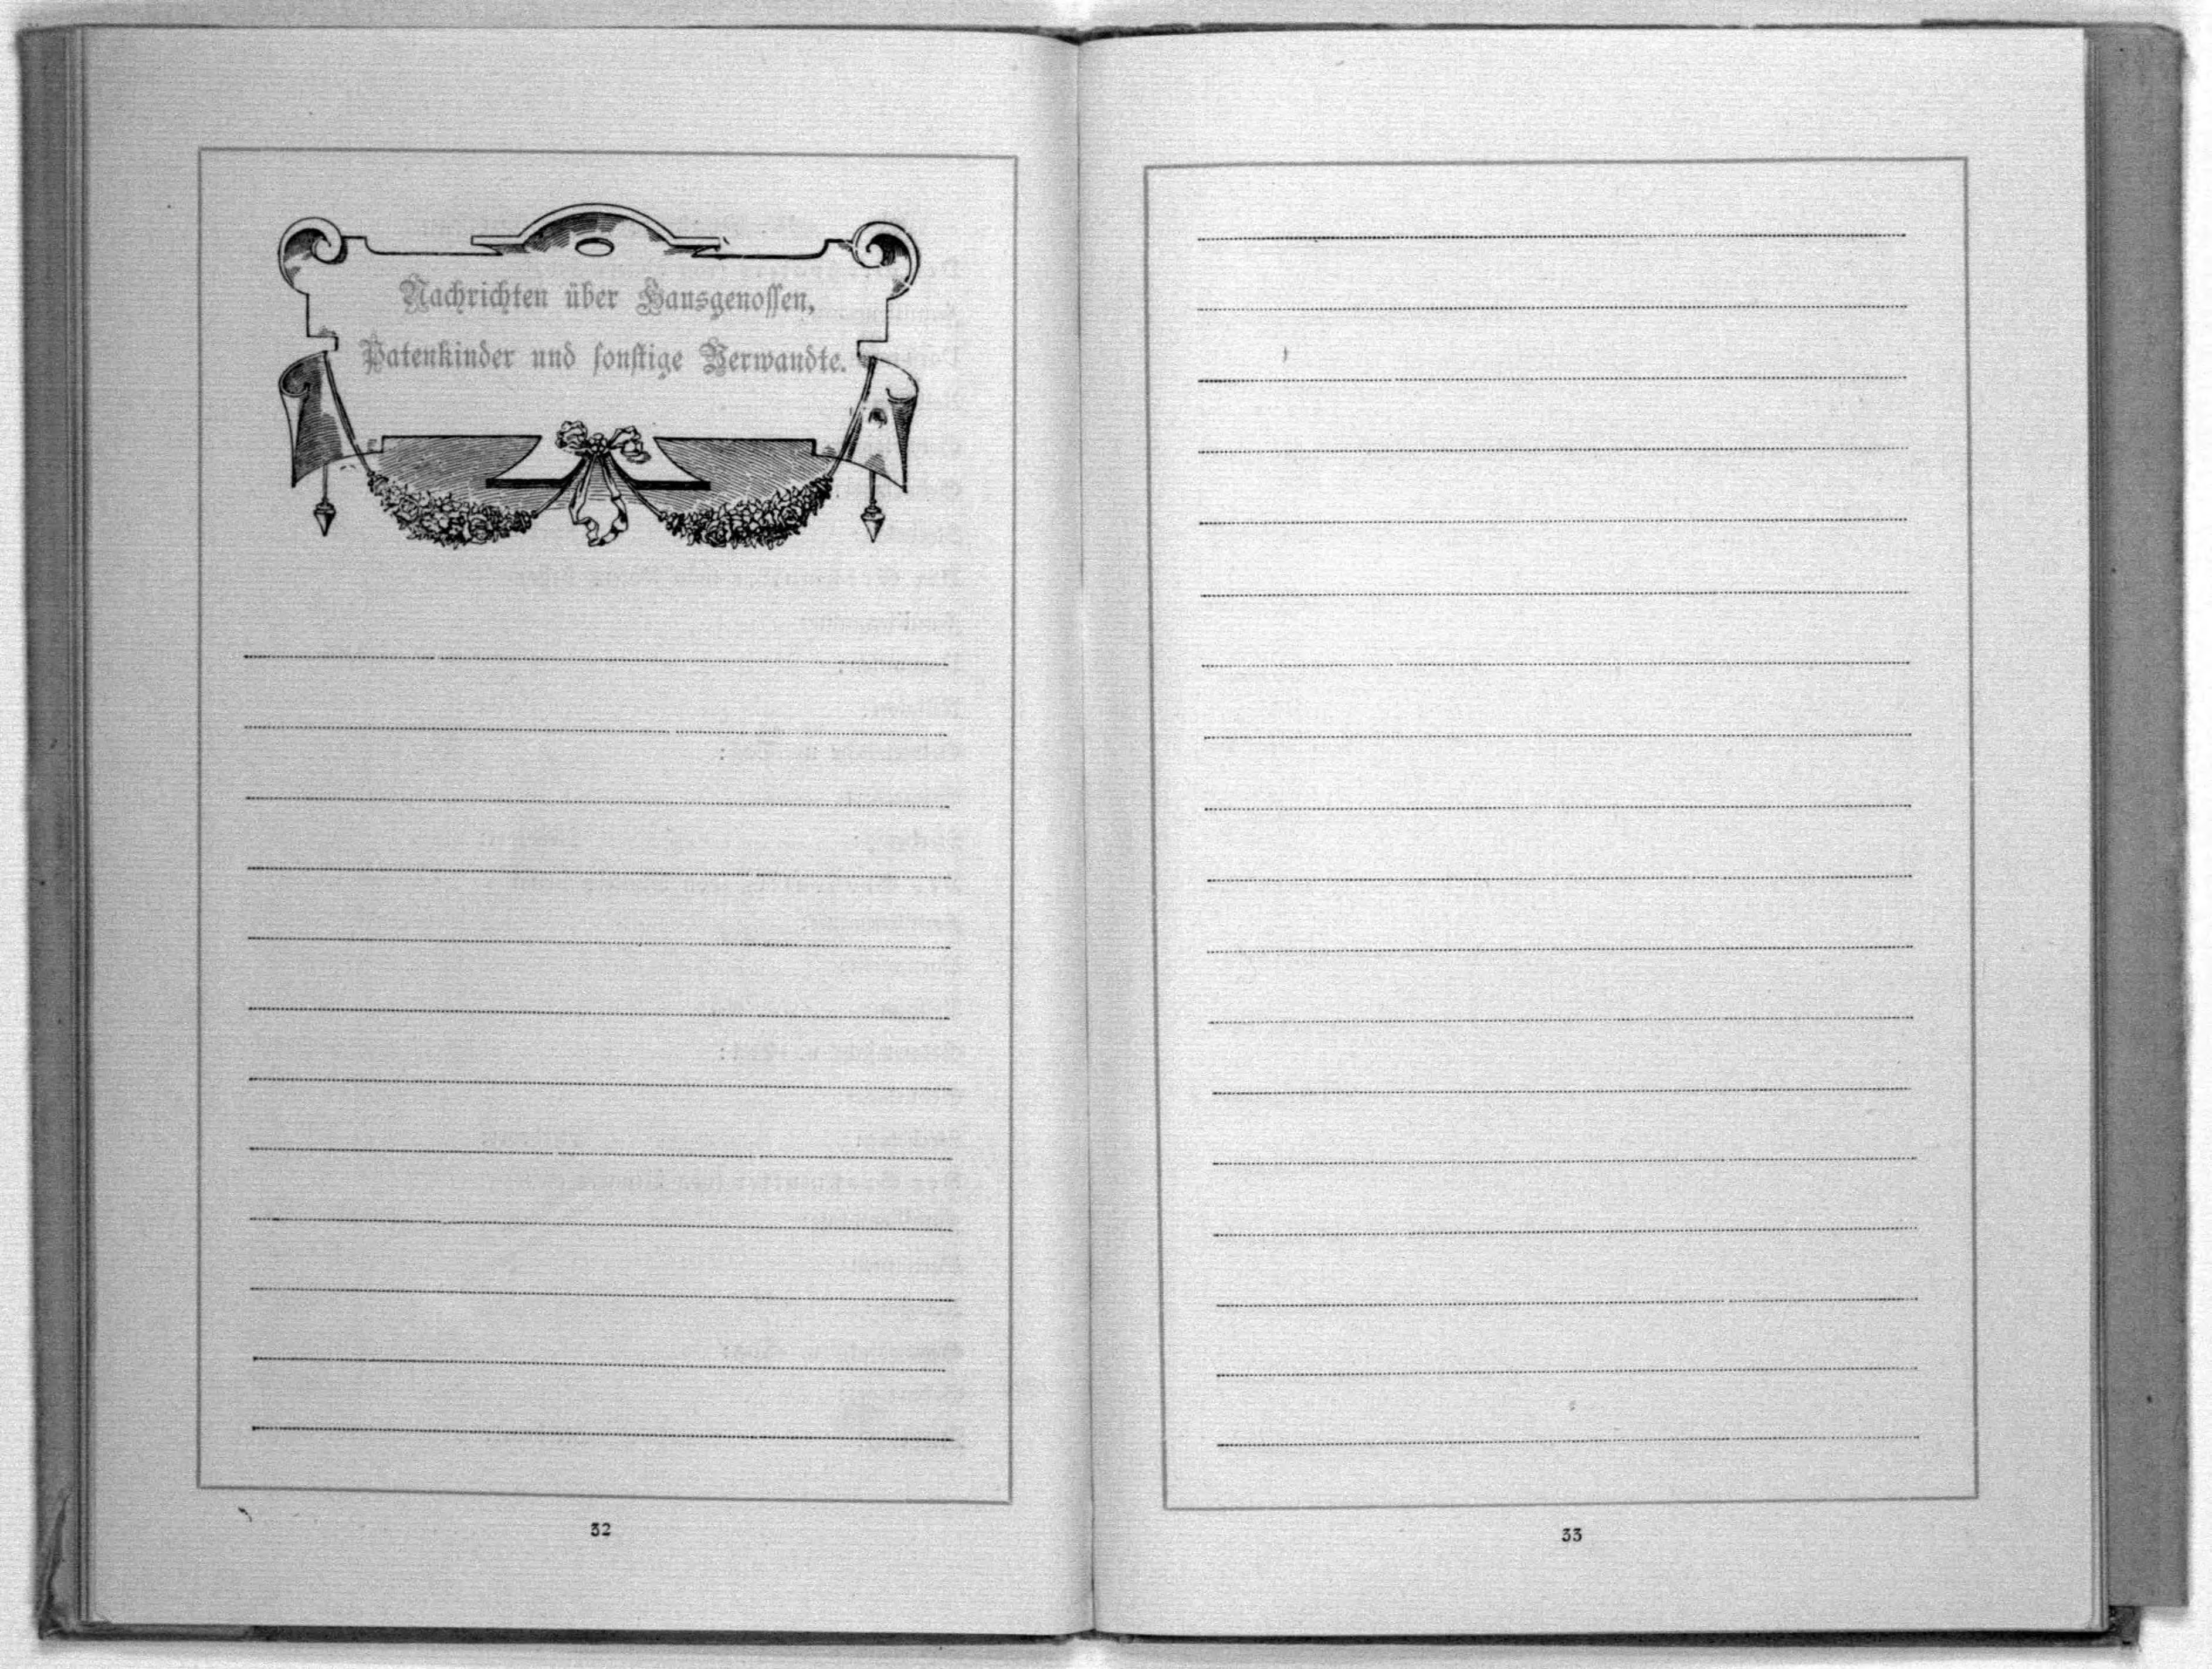 Nachrichten über Hausgenossen,
Patenkinder und sonstige Verwandte.
32
33